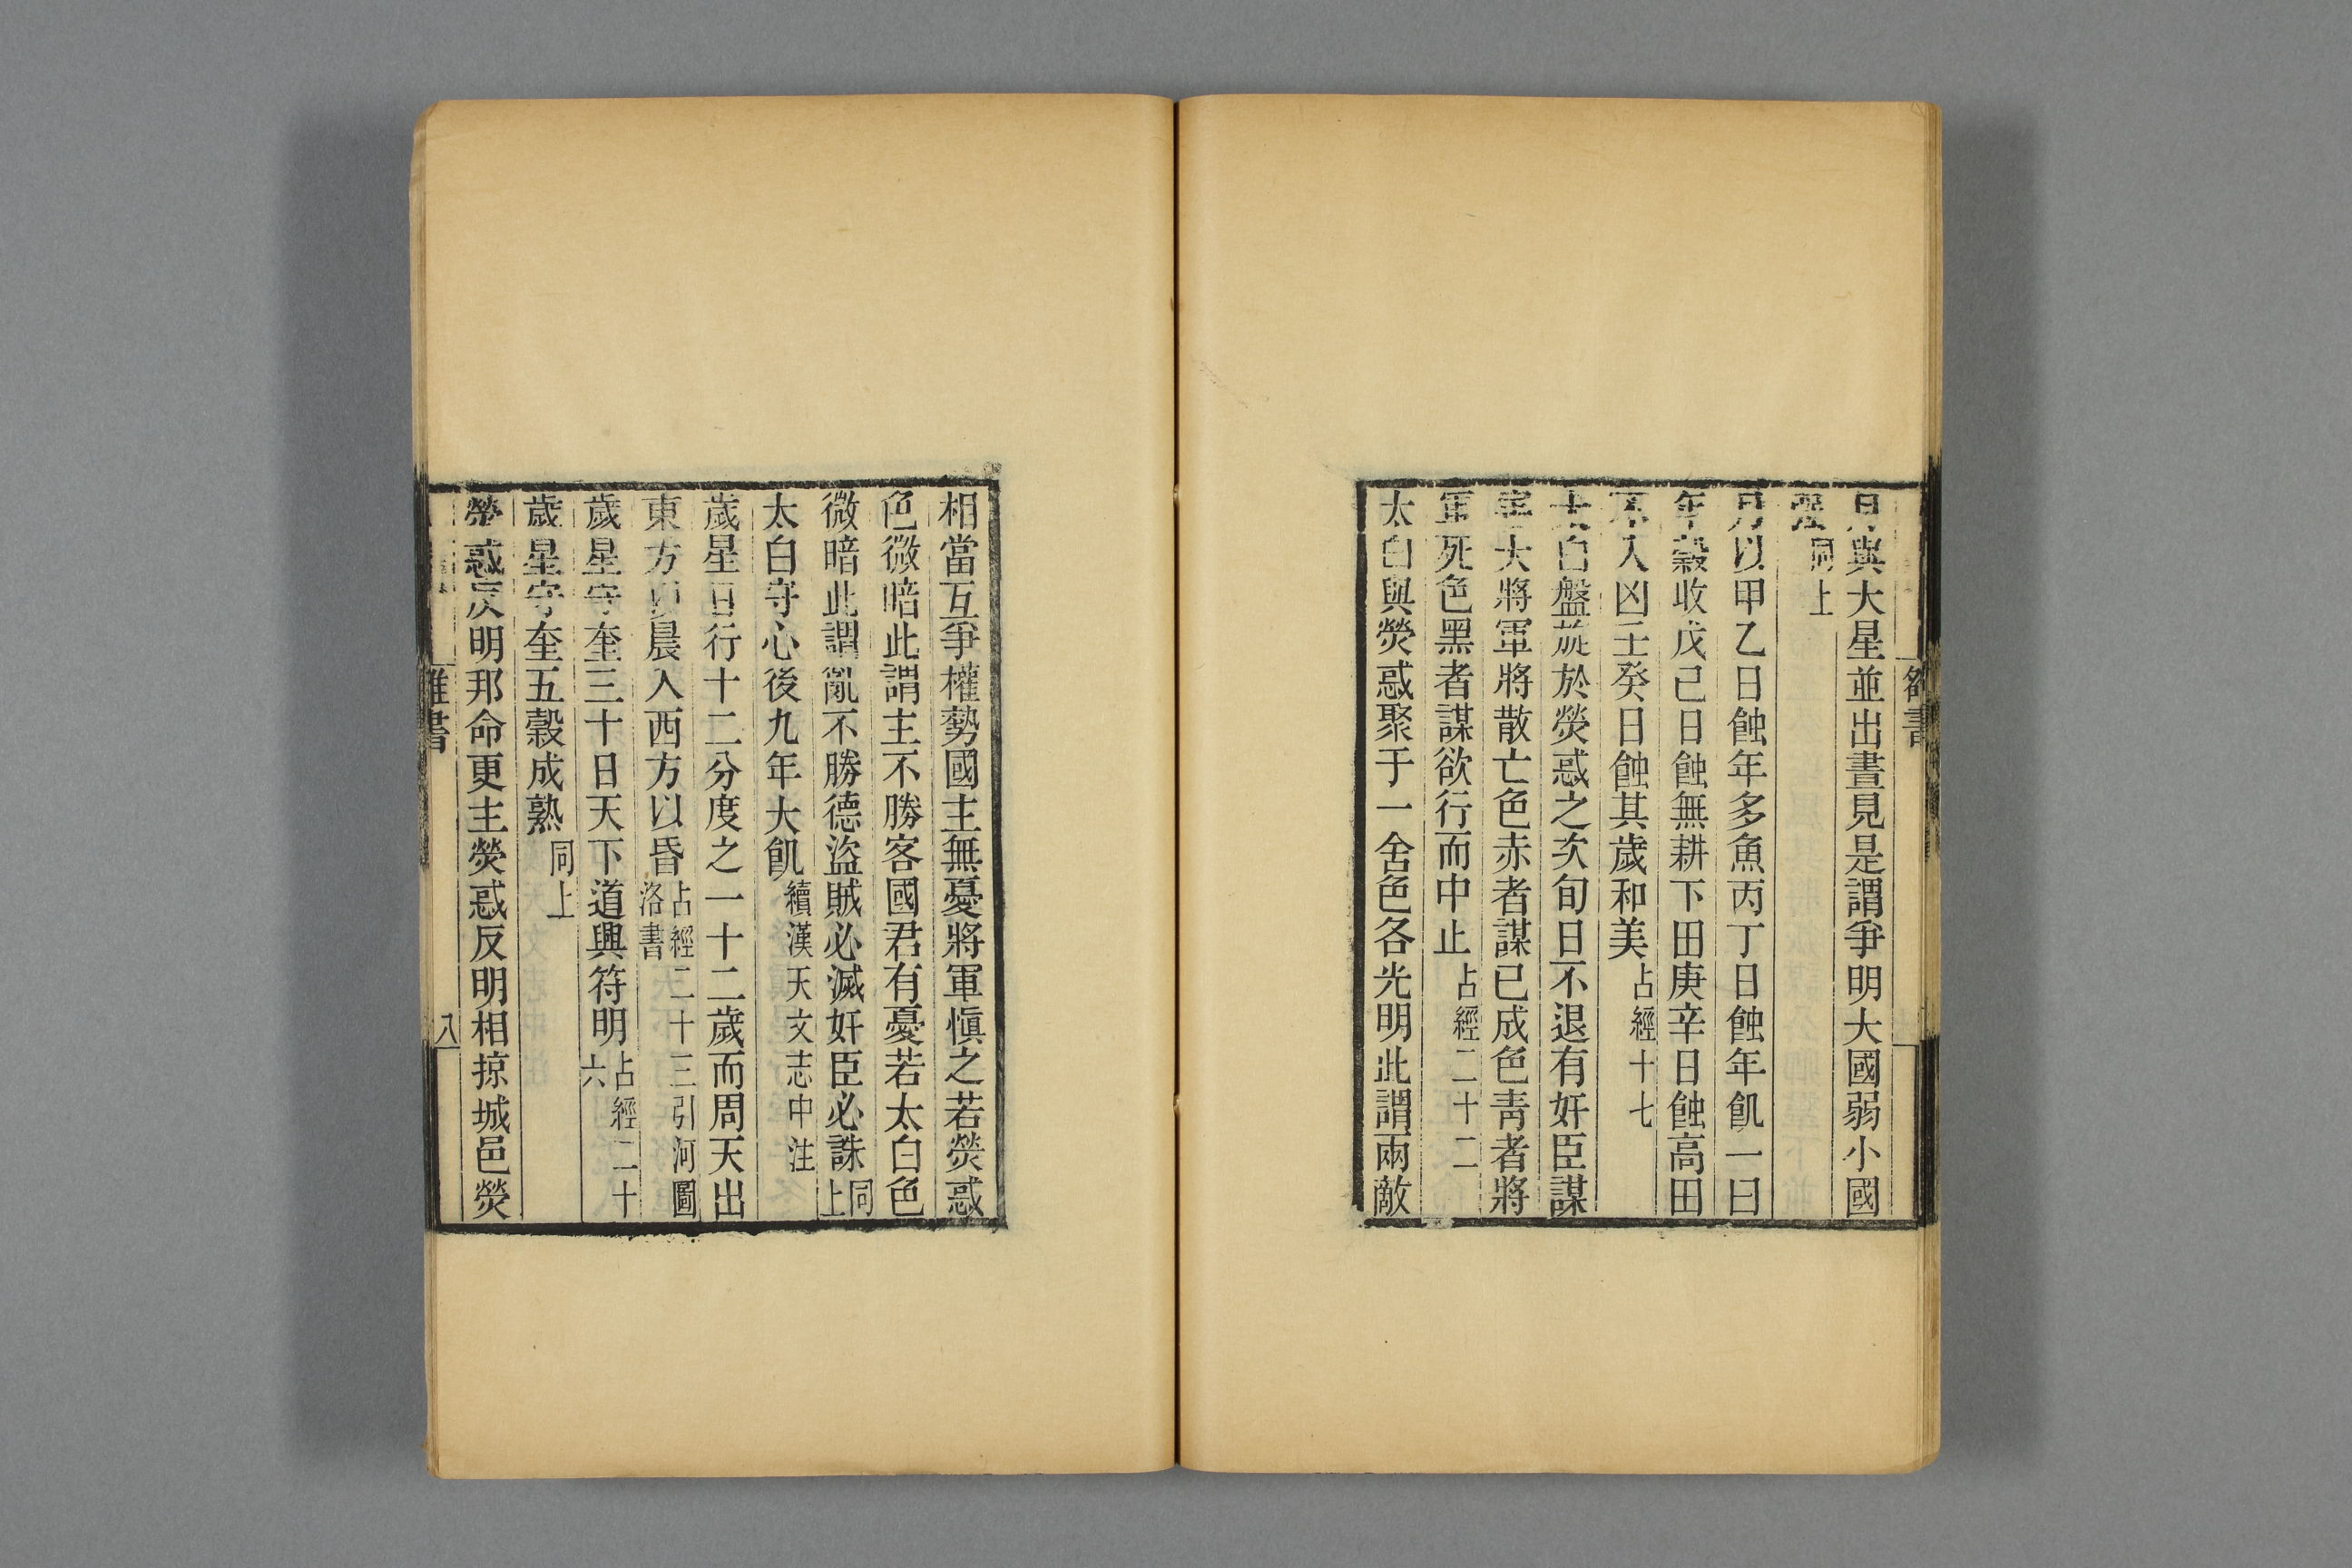 月與大星並出晝見是謂爭明大國弱小國
強同上
月以甲乙日蝕年多魚丙丁日蝕年飢一曰
年穀收戊己日蝕無耕下田庚辛日蝕高田
不入凶壬癸日蝕其歲和美占經十七
太白盤旋於熒惑之次旬日不退有奸臣謀
宰大將軍將散亡色赤者謀已成色青者將
軍死色黑者謀欲行而中止占經二十二
太白與熒惑聚于一舍色各光明此謂兩敵
相當互爭權勢國主無憂將軍慎之若熒惑
色微暗此謂主不勝客國君有憂若太白色
微暗此謂亂不勝德盜賊必滅奸臣必誅同上
太白守心後九年大飢續漢天文志中注
歲星日行十二分度之一十二歲而周天出
東方以晨入西方以昏占經二十三引河圖洛書
歲星守奎三十日天下道興符明占經二十六
歲星守奎五穀成熟同上
熒惑反明邦命更主熒惑反明相掠城邑熒
雒書
八